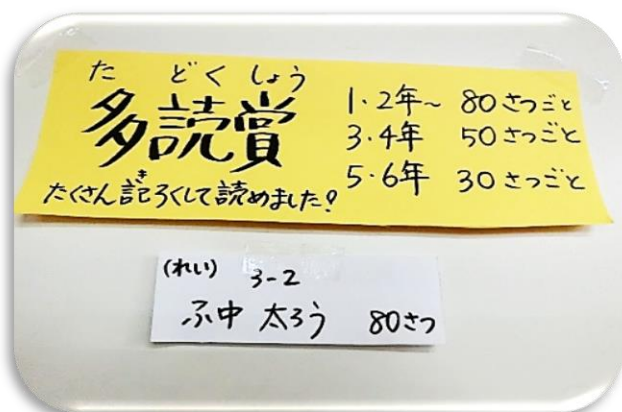 た どく しょう
多読賞
き
たくさん記ろくして読めました!
1・2年~ 80さつごと
3・4年 50さつごと
5・6年 30さつごと
(れい) 3-2
ふ中 太ろう 80さつ